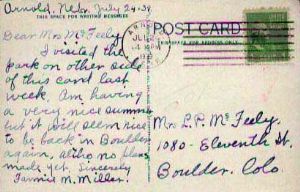 Arnold, Nebr. July 24-39
THIS SPACE FOR WRITING MESSAGES
POST CARD
Dear Mrs McFeely
I visited the
park on other side
of this card last
week. Am having
a very nice summer
but it will seem nice
to be back in Boulder
again, altho no plans
made yet. Sincerely
Fannie M. Miller.
Mrs L.P. McFeely
1080 - Eleventh St.
Boulder. Colo.